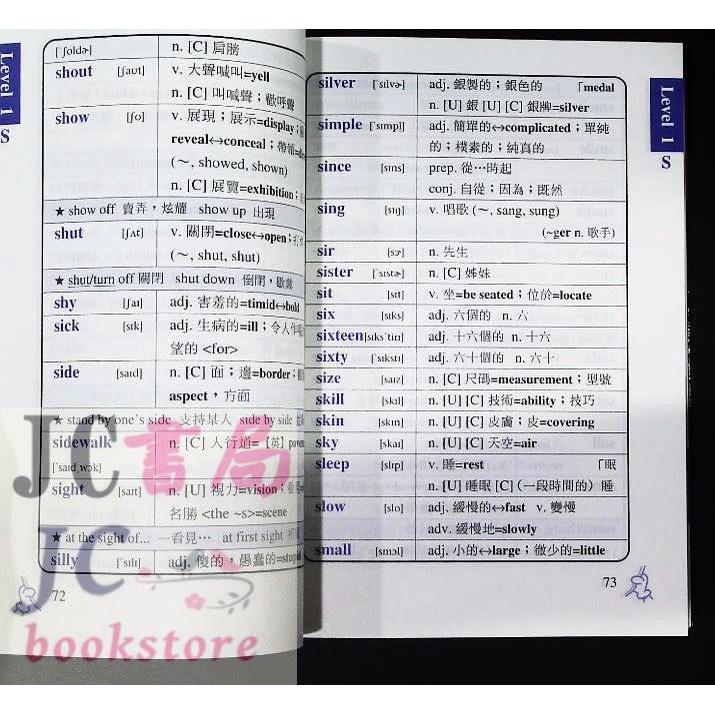 Level 1
S
[ˋʃoldɚ] n. [C] 肩膀
shout [ʃaʊt] v. 大聲喊叫=yell
n. [C] 叫喊聲；歡呼聲
show [ʃo] v. 展現；展示=display；
reveal↔conceal；帶領=
(～, showed, shown)
n. [C] 展覽=exhibition；
★ show off 賣弄，炫耀 show up 出現
shut [ʃʌt] v. 關閉=close↔open；
(～, shut, shut)
★ shut/turn off 關閉 shut down 倒閉，歇業
shy [ʃaɪ] adj. 害羞的=timid↔bold
sick [sɪk] adj. 生病的=ill；令人作
望的 <for>
side [saɪd] n. [C] 面；邊=border；
aspect，方面
★ stand by one's side 支持某人 side by side
sidewalk n. [C] 人行道=【英】
[ˋsaɪd͵wɔk]
sight [saɪt] n. [U] 視力=vision；
名勝 <the ~s>=scene
★ at the sight of… 一看見… at first sight
silly [ˋsɪlɪ] adj. 傻的，愚蠢的=stupid
72
silver [ˋsɪlvɚ] adj. 銀製的；銀色的 「medal
n. [U] 銀 [U] [C] 銀牌=silver
simple [ˋsɪmpl̩] adj. 簡單的↔complicated；單純
的；樸素的；純真的
since [sɪns] prep. 從…時起
conj. 自從；因為；既然
sing [sɪŋ] v. 唱歌 (～, sang, sung)
(~ger n. 歌手)
sir [sɝ] n. 先生
sister [ˋsɪstɚ] n. [C] 姊妹
sit [sɪt] v. 坐=be seated；位於=locate
six [sɪks] adj. 六個的 n. 六
sixteen [sɪksˋtin] adj. 十六個的 n. 十六
sixty [ˋsɪkstɪ] adj. 六十個的 n. 六十
size [saɪz] n. [C] 尺碼=measurement；型號
skill [skɪl] n. [U] [C] 技術=ability；技巧
skin [skɪn] n. [U] [C] 皮膚；皮=covering
sky [skaɪ] n. [U] [C] 天空=air
sleep [slip] v. 睡=rest 「眠
n. [U] 睡眠 [C] (一段時間的) 睡
slow [slo] adj. 緩慢的↔fast v. 變慢
adv. 緩慢地=slowly
small [smɔl] adj. 小的↔large；微少的=little
73
Level 1
S
JC書局
JC
bookstore